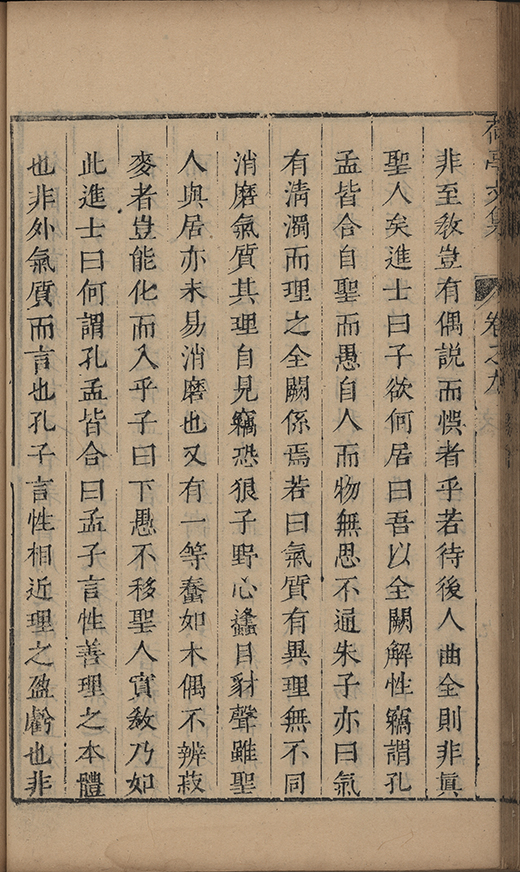 荷亭文集 卷之九
非至教豈有偶説而悞者乎若待後人曲全則非眞
聖人矣進士曰子欲何居曰吾以全闕解性竊謂孔
孟皆合自聖而愚自人而物無思不通朱子亦曰氣
有清濁而理之全闕係焉若曰氣質有異理無不同
消磨氣質其理自見竊恐狼子野心蠭目豺聲雖聖
人與居亦未易消磨也又有一等蠢如木偶不辨菽
麥者豈能化而入乎子曰下愚不移聖人實教乃如
此進士曰何謂孔孟皆合曰孟子言性善理之本體
也非外氣質而言也孔子言性相近理之盈虧也非